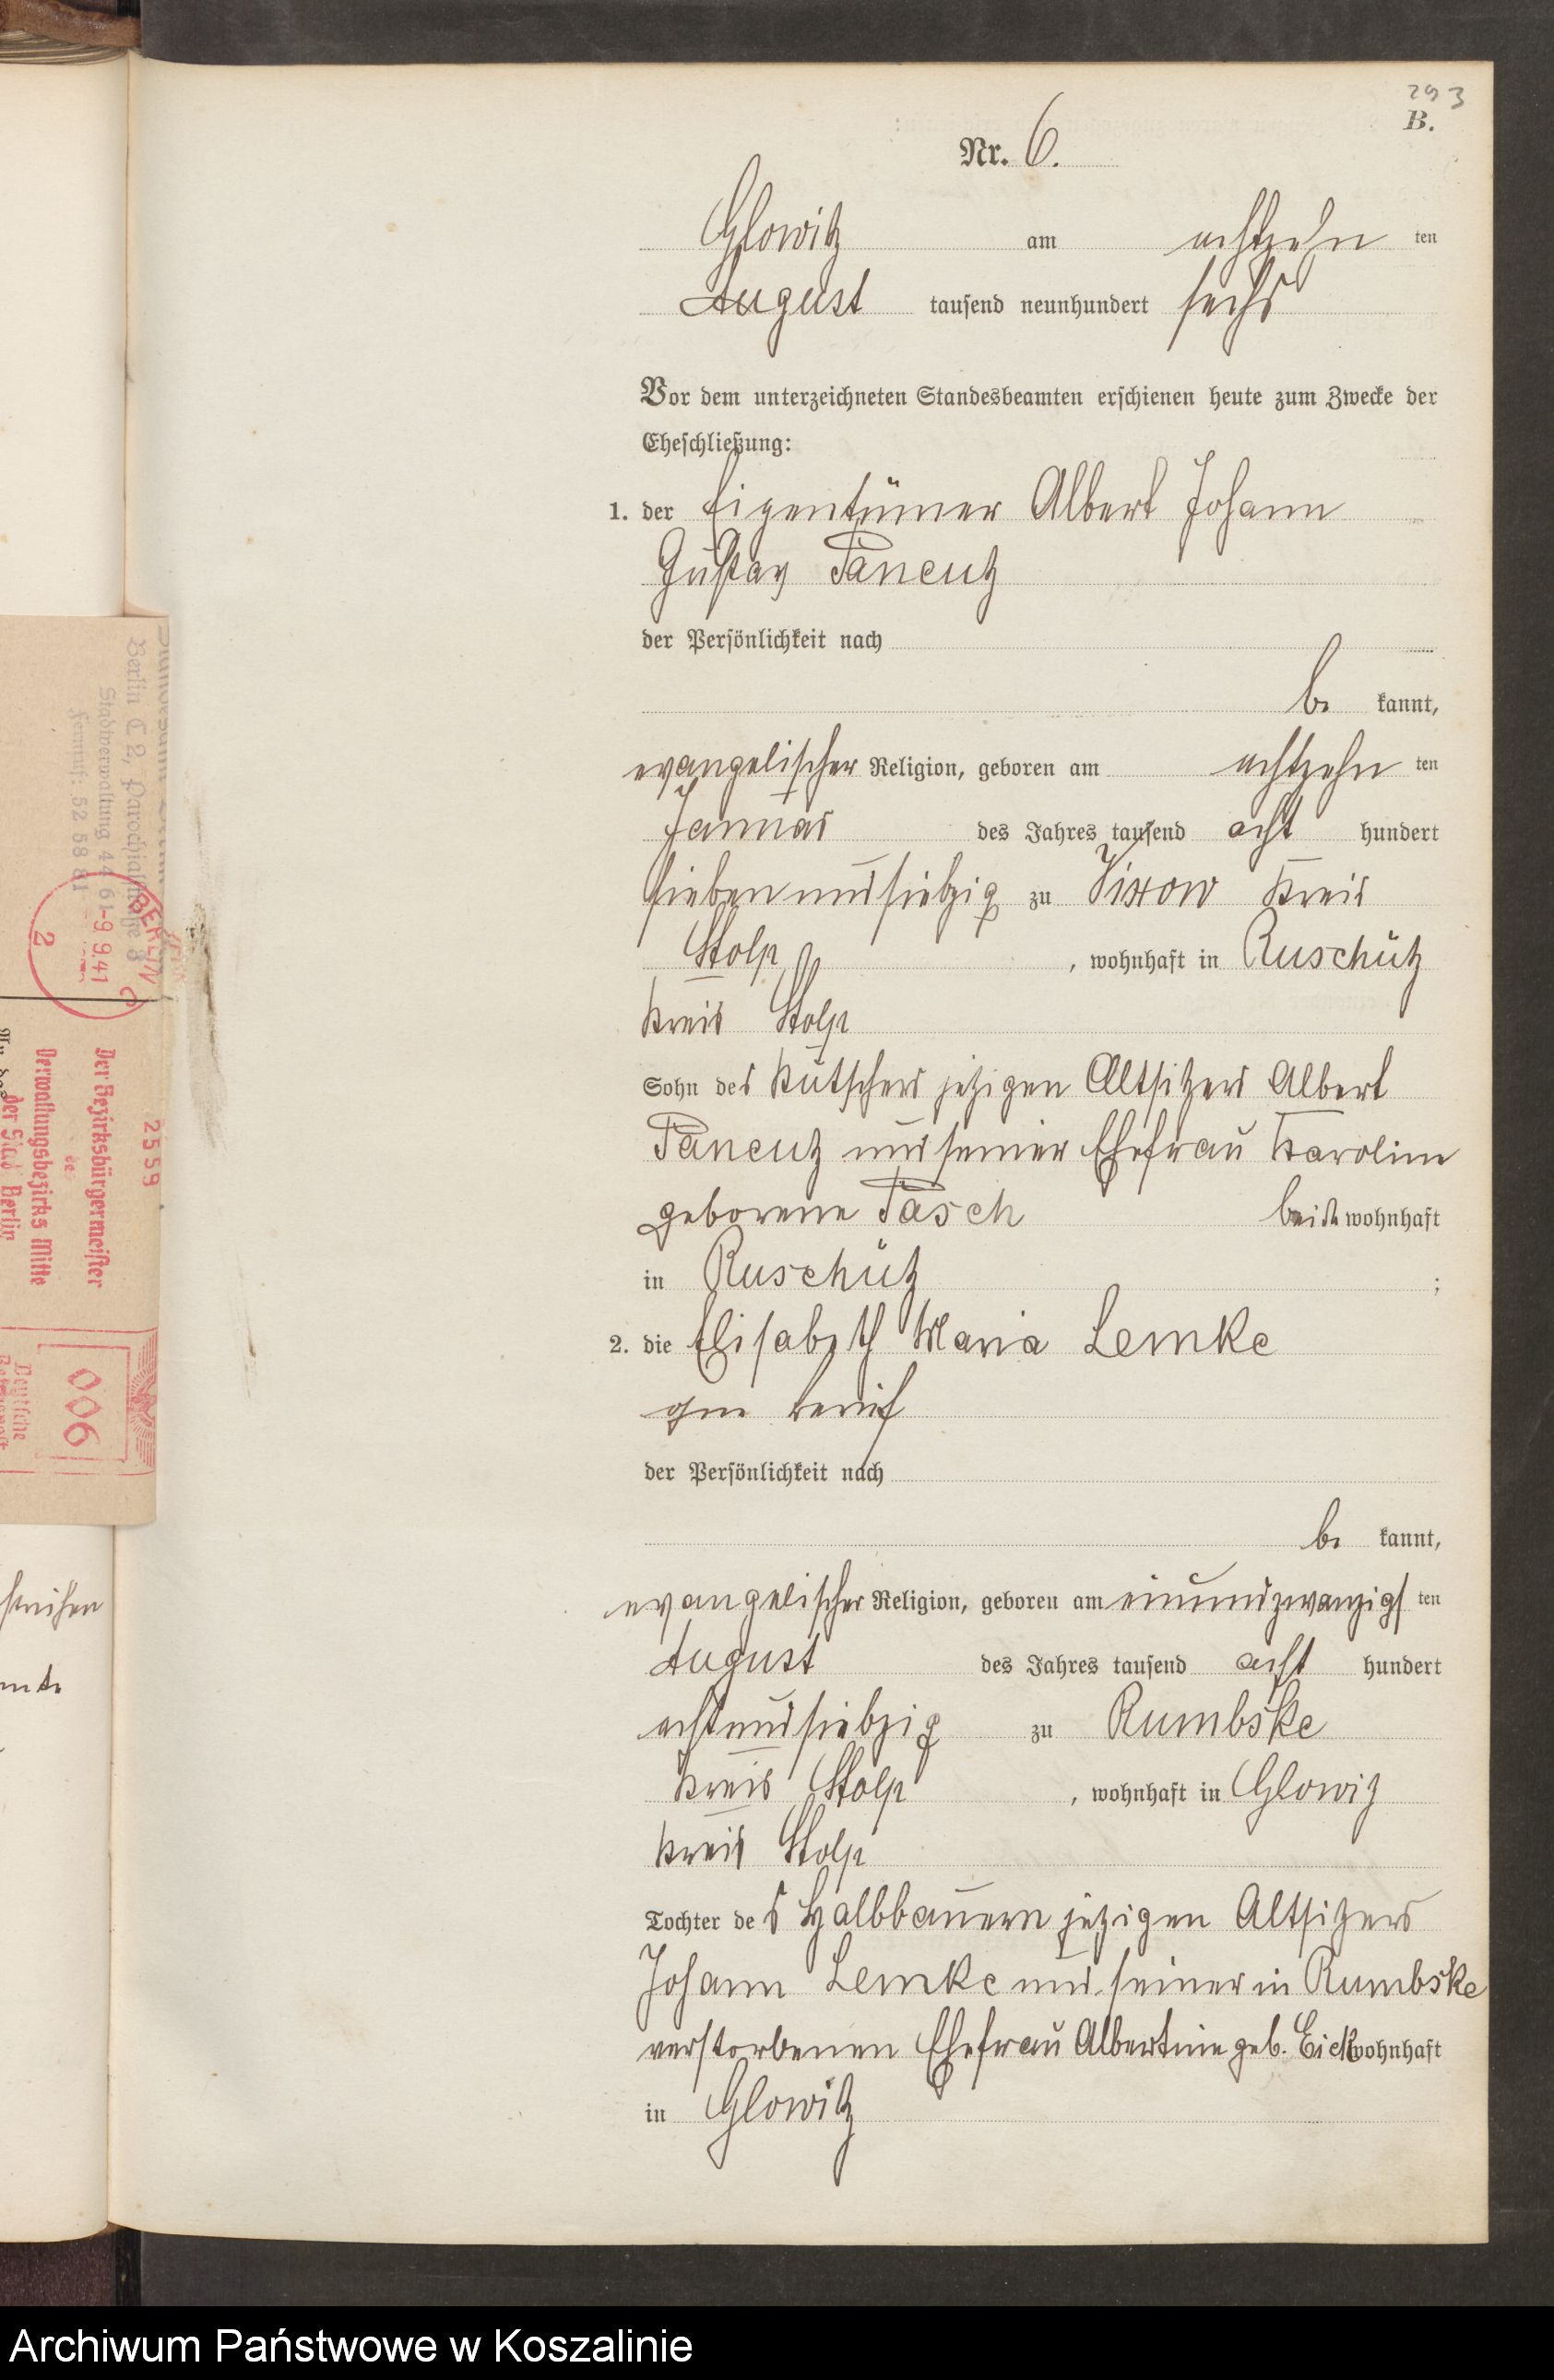 293
B.
Nr. 6.
Glowitz am achtzehn ten
August tausend neunhundert sechs
Vor dem unterzeichneten Standesbeamten erschienen heute zum Zwecke der
Eheschließung:
1. der Eigentümer Albert Johann
Gustav Pancutz
der Persönlichkeit nach
be kannt,
evangelischer Religion, geboren am achtzehn ten
Januar des Jahres tausend acht hundert
siebenundsiebzig zu Vixow Kreis
Stolp, wohnhaft in Ruschütz
Kreis Stolp
Sohn des Kutschers jetzigen Altsitzers Albert
Pancutz und seiner Ehefrau Karoline
geborene Pasch beide wohnhaft
in Ruschütz;
2. die Elisabeth Maria Lemke
ohne Beruf
der Persönlichkeit nach
be kannt,
evangelischer Religion, geboren am einundzwanzigs ten
August des Jahres tausend acht hundert
achtundsiebzig zu Rumbske
Kreis Stolp, wohnhaft in Glowitz
Kreis Stolp
Tochter des Halbbauern jetzigen Altsitzers
Johann Lemke und seiner in Rumbske
verstorbenen Ehefrau Albertine geb. Eick wohnhaft
in Glowitz
Berlin C 2, Parochialstraße 3
Stadtverwaltung 44 61
Fernruf: 52 58 81
BERLIN C
2
-9.9.41
Der Bezirksbürgermeister
des
Verwaltungsbezirks Mitte
der Stadt Berlin
2559
Deutsche
Reichspost
006
Archiwum Państwowe w Koszalinie